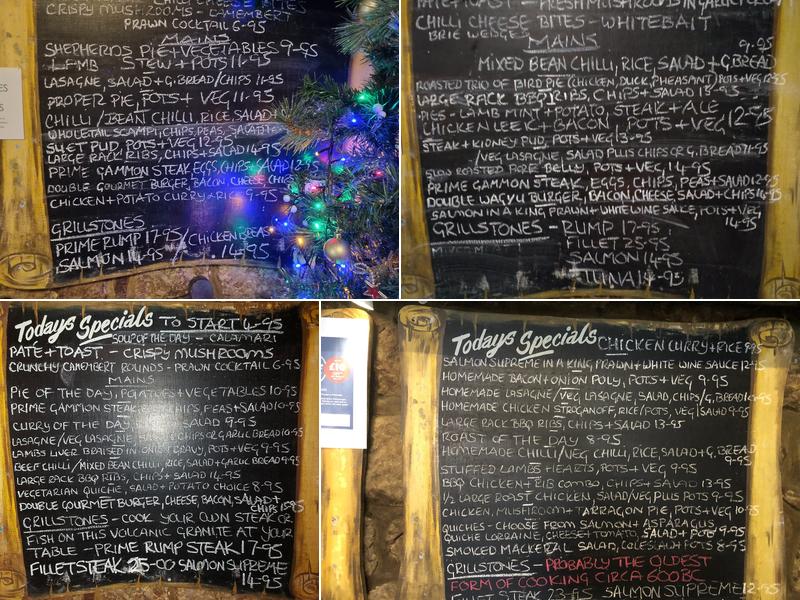 CRISPY MUSHROOMS - CAMEMBERT
PRAWN COCKTAIL 6-95
MAINS
SHEPHERDS PIE + VEGETABLES 9-95
LAMB STEW + POTS 11-95
LASAGNE, SALAD + G. BREAD/CHIPS 11-95
PROPER PIE, POTS + VEG 11-95
CHILLI/BEAN CHILLI, RICE, SALAD +
WHOLETAIL SCAMPI, CHIPS, PEAS, SALAD
SUET PUD, POTS + VEG
LARGE RACK RIBS, CHIPS + SALAD 14-95
PRIME GAMMON STEAK EGGS, CHIPS + SALAD 12-95
DOUBLE GOURMET BURGER, BACON, CHEESE, CHIPS
CHICKEN + POTATO CURRY + RICE 9-95
GRILLSTONES
PRIME RUMP 17-95 / CHICKEN BREAS
SALMON 14-95 14-95
PATE + TOAST - FRESH MUSHROOMS IN GARLIC
CHILLI CHEESE BITES - WHITEBAIT
BRIE WEDGES
MAINS
9-95
MIXED BEAN CHILLI, RICE, SALAD + G. BREAD
ROASTED TRIO OF BIRD PIE (CHICKEN, DUCK, PHEASANT) POTS + VEG 12-95
LARGE RACK BBQ RIBS, CHIPS + SALAD 15-95
PIES - LAMB MINT + POTATO, STEAK + ALE
CHICKEN LEEK + BACON, POTS + VEG 12-95
STEAK + KIDNEY PUD, POTS + VEG 13-95
/VEG LASAGNE, SALAD PLUS CHIPS OR G, BREAD 11-95
SLOW ROASTED PORK BELLY, POTS + VEG 14-95
PRIME GAMMON STEAK, EGGS, CHIPS, PEAS + SALAD 12-95
DOUBLE WAGYU BURGER, BACON, CHEESE, SALAD + CHIPS 14-95
SALMON IN A KING PRAWN + WHITE WINE SAUCE, POTS + VEG
14-95
GRILLSTONES - RUMP 17-95
FILLET 25-95
SALMON 14-95
TUNA 14-95
Todays Specials TO START 4-95
SOUP OF THE DAY - CALAMARI
PATE + TOAST - CRISPY MUSHROOMS
CRUNCHY CAMEMBERT ROUNDS - PRAWN COCKTAIL 6-95
MAINS
PIE OF THE DAY, POTATOES + VEGETABLES 10-95
PRIME GAMMON STEAK CHIPS, PEAS + SALAD 10-95
CURRY OF THE DAY, SALAD 9-95
LASAGNE/VEG LASAGNE CHIPS OR GARLIC BREAD 10-95
LAMBS LIVER BRAISED IN ONION GRAVY, POTS + VEG 9-95
BEEF CHILLI/MIXED BEAN CHILLI, RICE, SALAD + GARLIC BREAD 9-95
LARGE RACK BBQ RIBS, CHIPS + SALAD 14-95
VEGETARIAN QUICHE, SALAD + POTATO CHOICE 8-95
DOUBLE GOURMET BURGER, CHEESE, BACON, SALAD +
CHIPS
GRILLSTONES - COOK YOUR OWN STEAK OR
FISH ON THIS VOLCANIC GRANITE AT YOUR
TABLE - PRIME RUMP STEAK 17-95
FILLET STEAK 25-00 SALMON SUPREME
14-95
Todays Specials CHICKEN CURRY + RICE 9-95
SALMON SUPREME IN A KING PRAWN + WHITE WINE SAUCE 12-95
HOMEMADE BACON + ONION POLY, POTS + VEG 9-95
HOMEMADE LASAGNE/VEG LASAGNE, SALAD, CHIPS/G, BREAD 10-95
HOMEMADE CHICKEN STROGANOFF, RICE/POTS, VEG/SALAD 9-95
LARGE RACK BBQ RIBS, CHIPS + SALAD 13-95
ROAST OF THE DAY 8-95
HOMEMADE CHILLI/VEG CHILLI, RICE, SALAD + G, BREAD
9-95
STUFFED LAMBS HEARTS, POTS + VEG 9-95
BBQ CHICKEN + RIB COMBO, CHIPS + SALAD 13-95
1/2 LARGE ROAST CHICKEN, SALAD/VEG PLUS POTS 9-95
CHICKEN, MUSHROOM + TARRAGON PIE, POTS + VEG 10-95
QUICHES - CHOOSE FROM SALMON + ASPARAGUS
QUICHE LORRAINE, CHEESE + TOMATO, SALAD + POTS 9-95
SMOKED MACKERAL SALAD, COLESLAW + POTS 8-95
GRILLSTONES - PROBABLY THE OLDEST
FORM OF COOKING CIRCA 600BC
STEAK 23-95 SALMON SUPREME 12-95